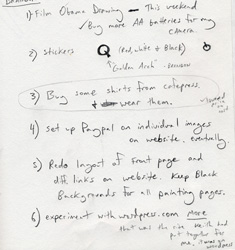 1) Film Obama Drawing – This weekend
✓ Buy more AA batteries for my camera
2) stickers Q (Red, white & Black)
"Golden Arch"
3) Buy some shirts from cafepress.
& wear them.
4) set up Paypal on individual images
on website. eventually.
5) Redo layout of front page and
diff. links on website. Keep Black
Backgrounds for all painting pages.
6) experiment with wordpress.com more
that was the site Keith had
put together for
me, it was on
wordpress